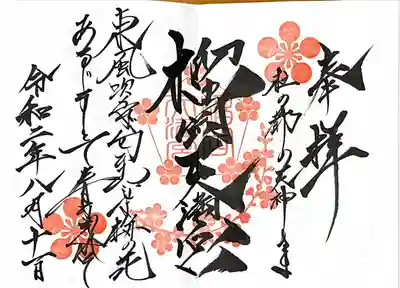 奉拝
杜の都の天神さま
榴岡天満宮
東風吹かば匂ひおこせよ梅の花
あるじなしとて春
令和二年八月十一日